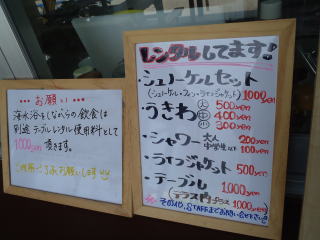 *** お願い ***
海水浴をしながらの飲食は
別途 テーブルレンタル使用料として
1000yen 頂きます。
ご理解・ご了承お願いします
レンタルしてます!
・シュノーケルセット
(シュノーケル・フィン・ライフジャケット) 1000yen
・うきわ 大 500yen
中 400yen
小 300yen
・シャワー 大人 200yen
中学生以下 100yen
・ライフジャケット 500yen
・テーブル 1,000yen
(テラス内 プラス 1000yen)
その他、STAFFまでお問い合せ下さい!